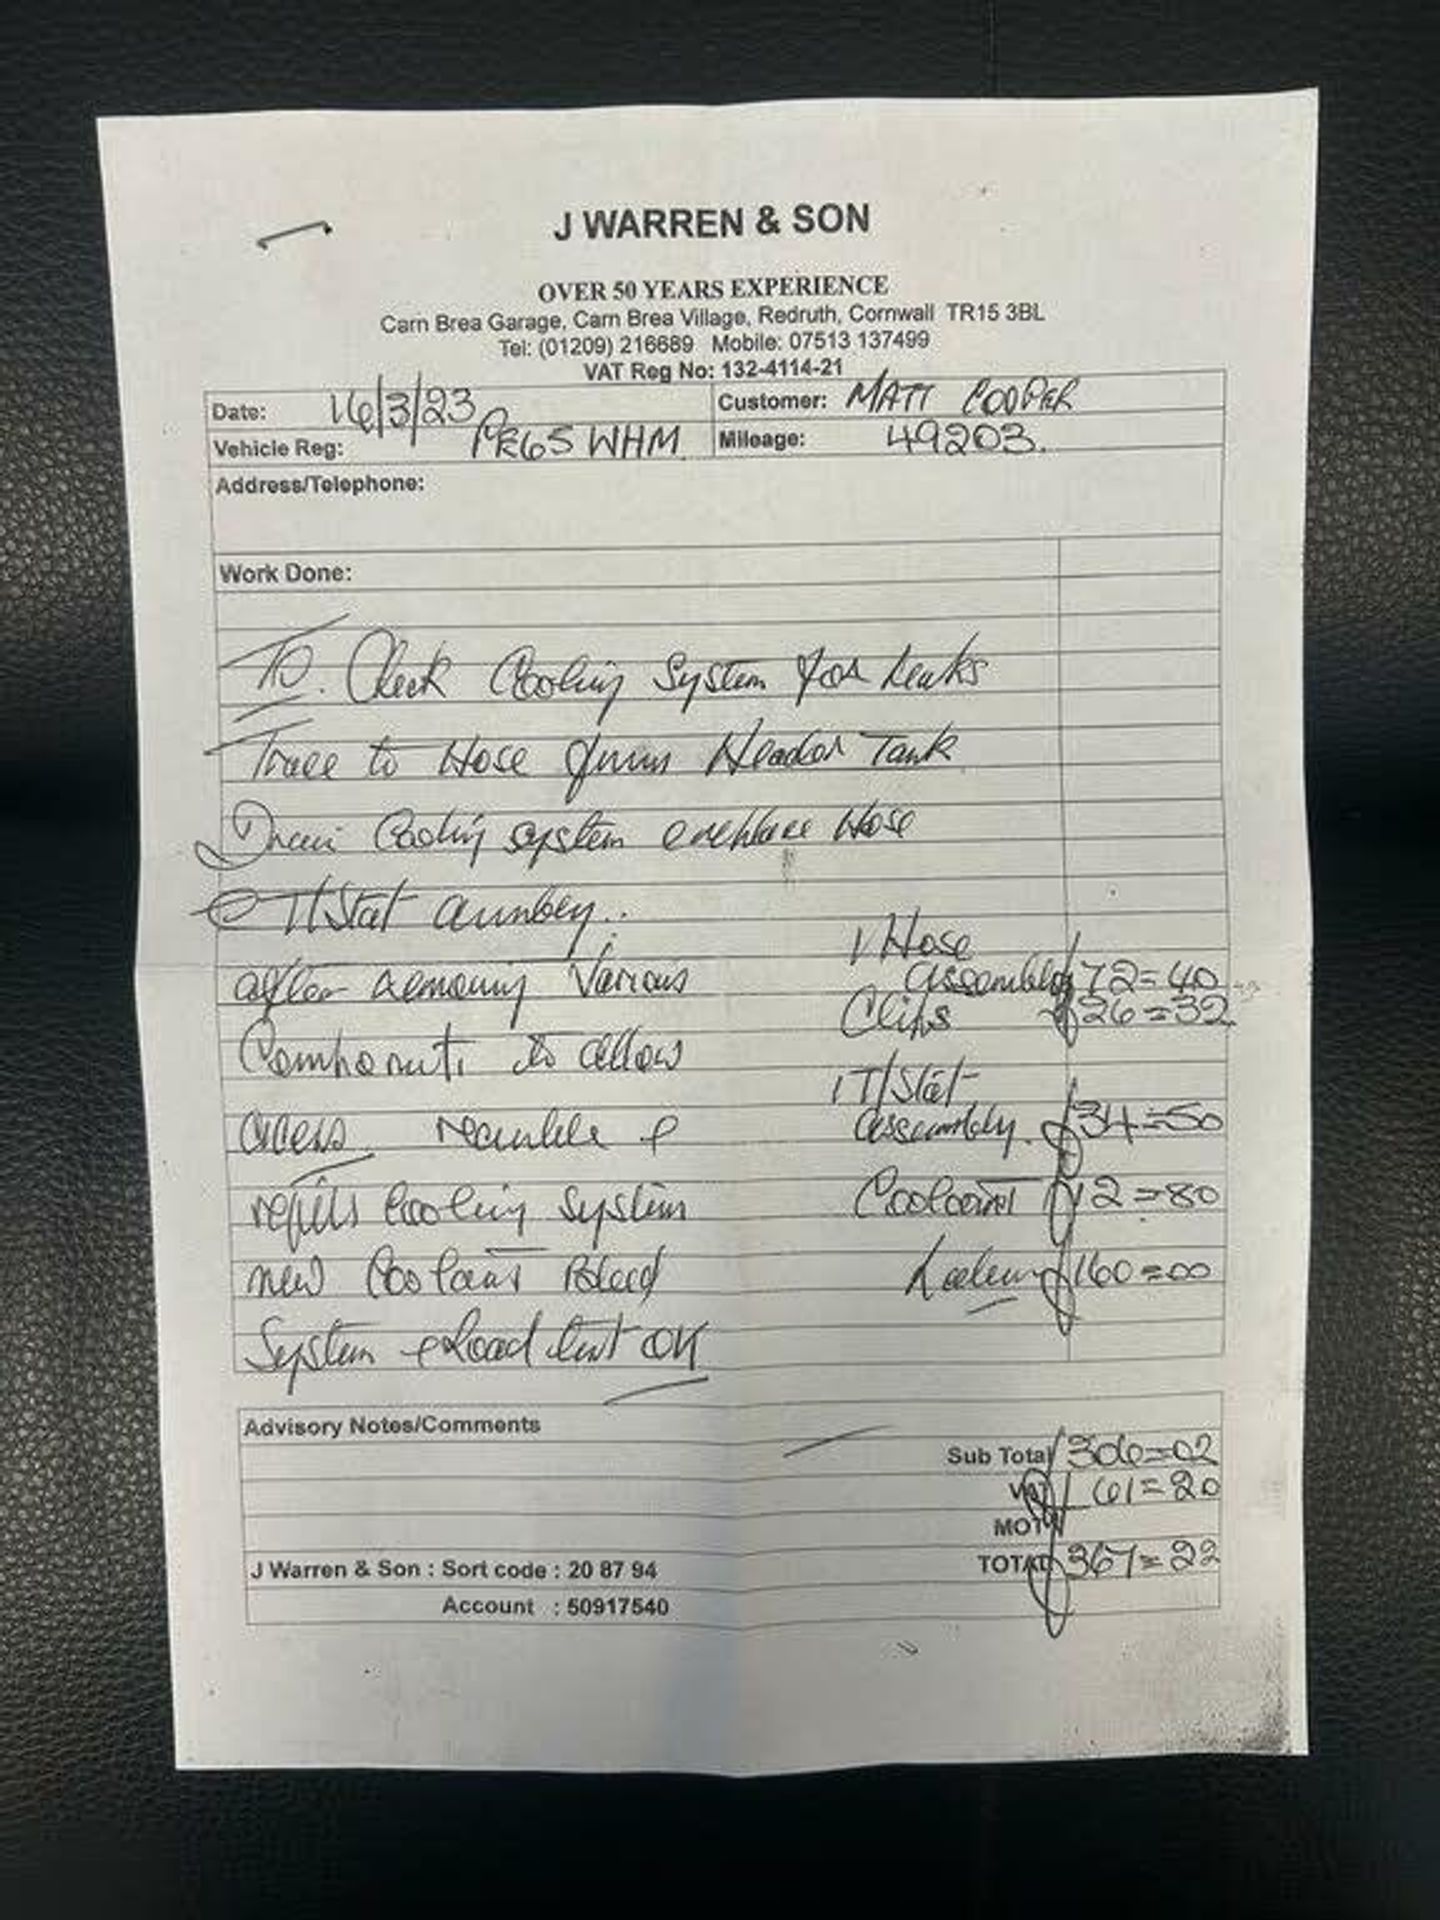 J WARREN & SON
OVER 50 YEARS EXPERIENCE
Carn Brea Garage, Carn Brea Village, Redruth, Cornwall TR15 3BL
Tel: (01209) 216689 Mobile: 07513 137499
VAT Reg No: 132-4114-21
Date: 16/3/23 Customer: MATT COOPER
Vehicle Reg: PE65 WHM Mileage: 49203.
Address/Telephone:
Work Done:
TO. Check Cooling System for Leaks
Trace to Hose from Header Tank
Drain Cooling system & replace Hose
& T/Stat
after removing Various
Components to allow
access &
refill Cooling System
new Coolant Bleed
System & Road test OK
1 Hose
assembly £72=40
Clips £26=32
1 T/Stat
assembly. £34=50
Coolant £12=80
Labour £160=00
Advisory Notes/Comments
Sub Total £306=02
VAT £61=20
MOT
TOTAL £367=22
J Warren & Son : Sort code : 20 87 94
Account : 50917540